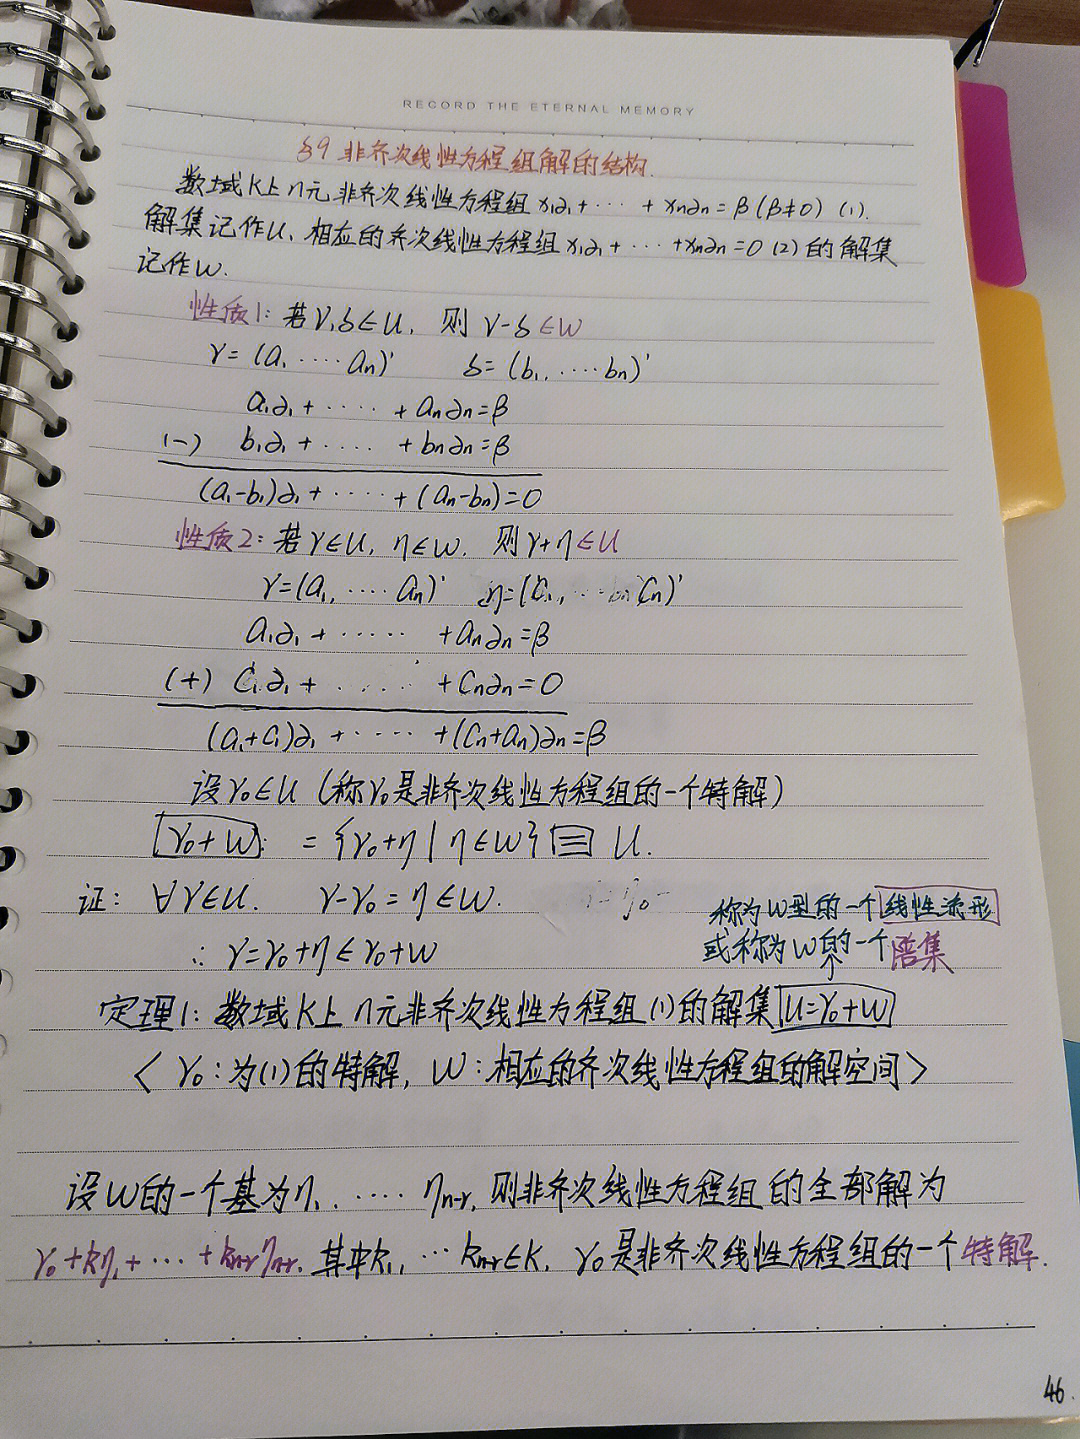 RECORD THE ETERNAL MEMORY
§9 非齐次线性方程组解的结构.
数域K上n元非齐次线性方程组 x₁∂₁+····+xn∂n=β(β≠0) (1).
解集记作U, 相应的齐次线性方程组x₁∂₁+····+xn∂n=0 (2) 的解集
记作W.
性质1: 若γ,δ∈U, 则 γ-δ∈W
γ=(a₁.····an)' δ=(b₁,····bn)'
a₁∂₁+·····+an∂n=β
(-) b₁∂₁+·····+bn∂n=β
(a₁-b₁)∂₁+·····+(an-bn)=0
性质2: 若γ∈U, η∈W, 则γ+η∈U
γ=(a₁,····an)' η=(C₁,···Cn)'
a₁∂₁+·····+an∂n=β
(+) C₁∂₁+·····+Cn∂n=0
(a₁+C₁)∂₁+·····+(Cn+an)∂n=β
设γ₀∈U (称γ₀是非齐次线性方程组的一个特解)
γ₀+W: = {γ₀+η | η∈W} = U.
证: ∀γ∈U. γ-γ₀=η∈W.
称为W型的一个线性流形
∴ γ=γ₀+η∈γ₀+W
或称为W的一个陪集
定理1: 数域K上n元非齐次线性方程组(1)的解集U=γ₀+W
〈γ₀:为(1)的特解, W:相应的齐次线性方程组的解空间〉
设W的一个基为η₁.····ηn-r, 则非齐次线性方程组的全部解为
γ₀+kη₁+···+kn-rηn-r. 其中k₁,···kn-r∈K, γ₀是非齐次线性方程组的一个特解.
46.